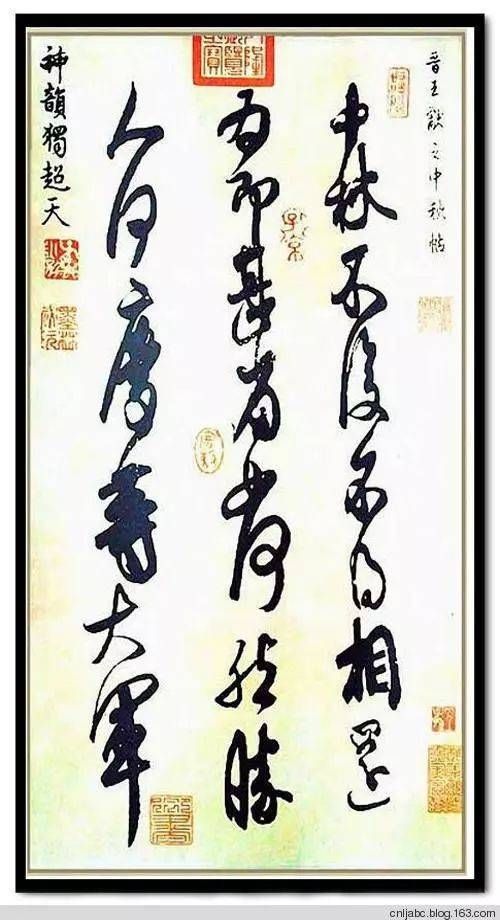 晉王獻之中秋帖
中秋不復不得相還
為即甚省如何然勝
人何慶等大軍
神韻獨超天
cnljabc.blog.163.com